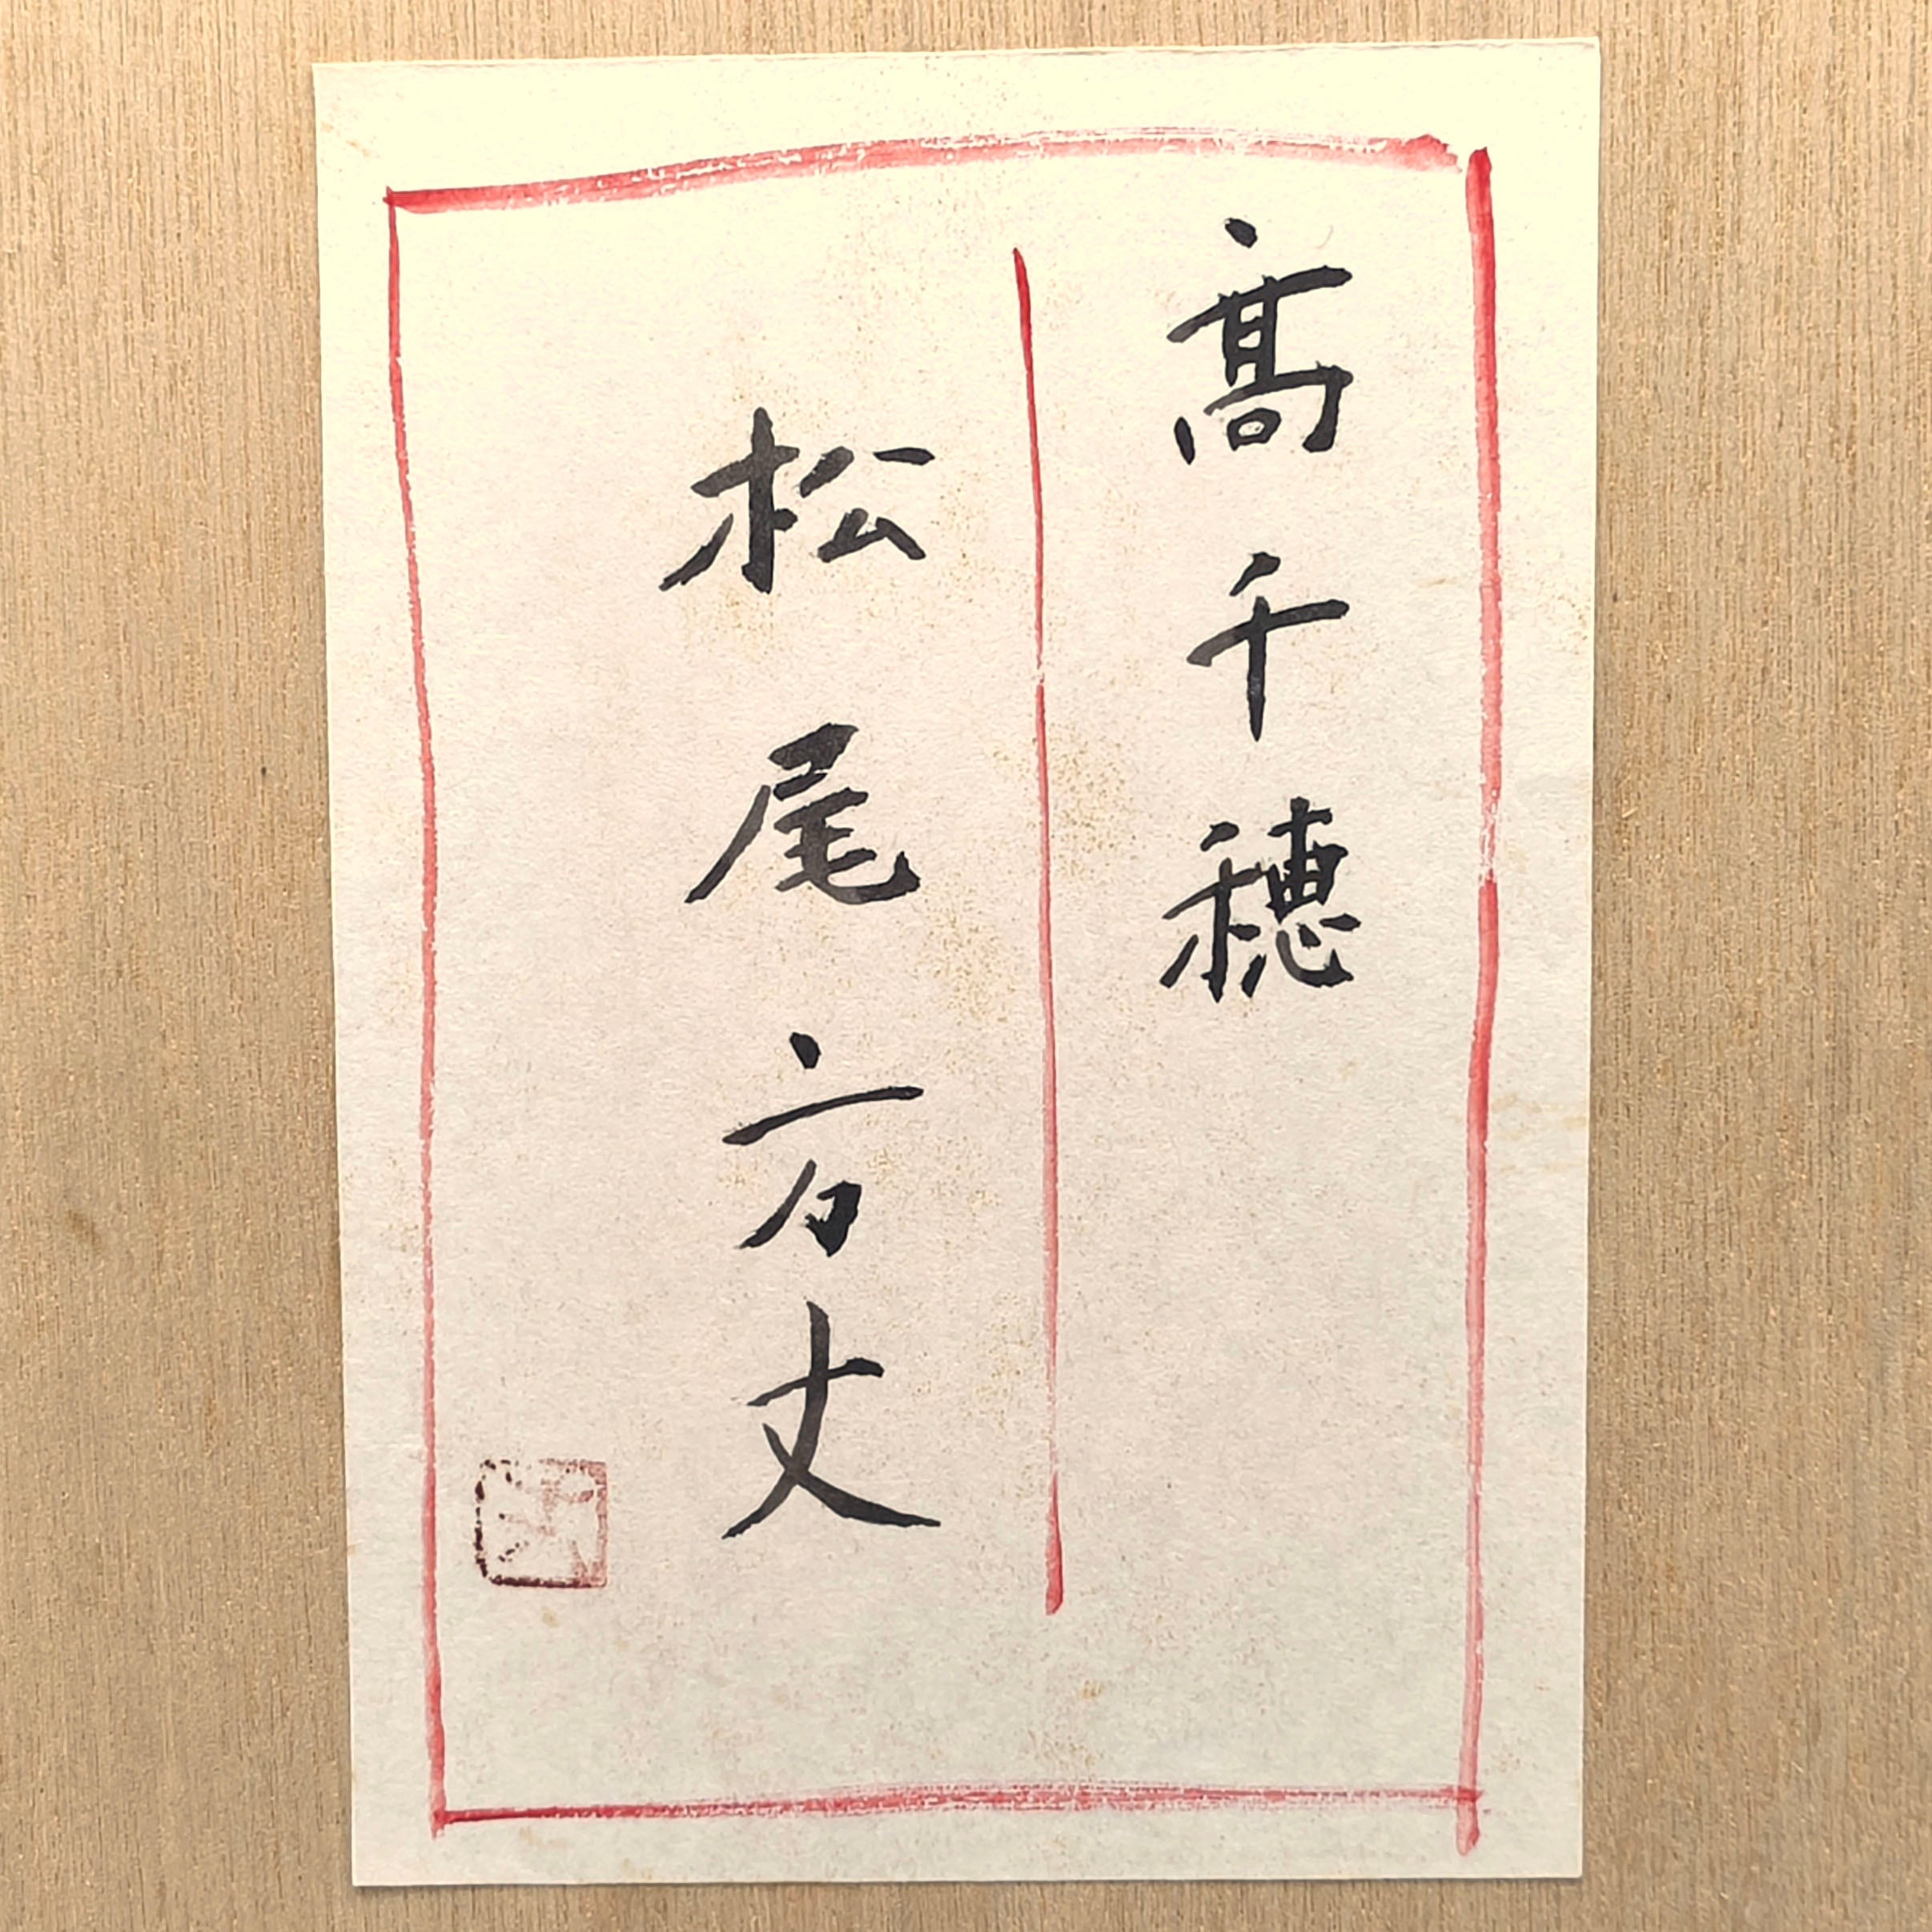 髙千穂
松尾方丈